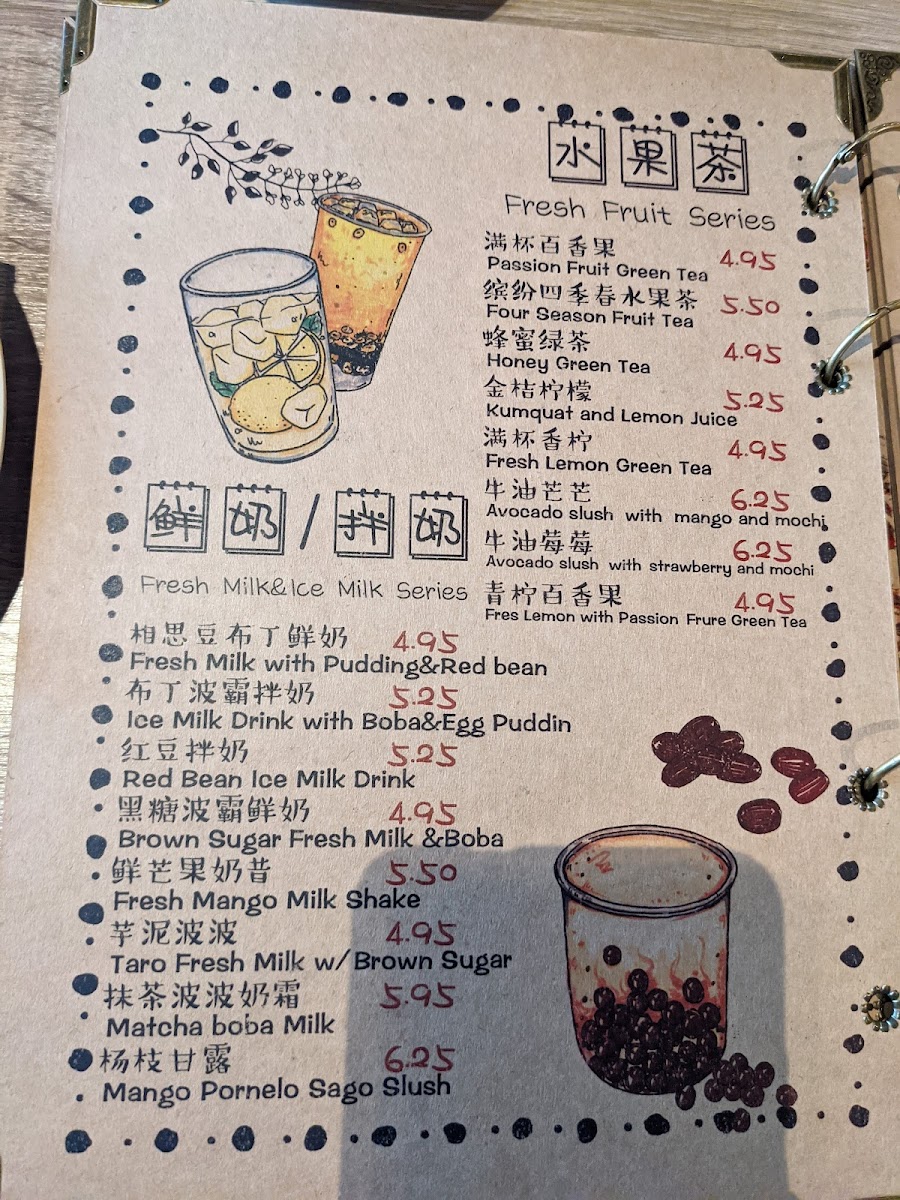 水果茶
Fresh Fruit Series
满杯百香果 4.95
Passion Fruit Green Tea
缤纷四季春水果茶 5.50
Four Season Fruit Tea
蜂蜜绿茶 4.95
Honey Green Tea
金桔柠檬 5.25
Kumquat and Lemon Juice
满杯香柠 4.95
Fresh Lemon Green Tea
牛油芒芒 6.25
Avocado slush with mango and mochi
牛油莓莓 6.25
Avocado slush with strawberry and mochi
青柠百香果 4.95
Fres Lemon with Passion Frure Green Tea
鲜奶/拌奶
Fresh Milk&Ice Milk Series
相思豆布丁鲜奶 4.95
Fresh Milk with Pudding&Red bean
布丁波霸拌奶 5.25
Ice Milk Drink with Boba&Egg Puddin
红豆拌奶 5.25
Red Bean Ice Milk Drink
黑糖波霸鲜奶 4.95
Brown Sugar Fresh Milk &Boba
鲜芒果奶昔 5.50
Fresh Mango Milk Shake
芋泥波波 4.95
Taro Fresh Milk w/Brown Sugar
抹茶波波奶霜 5.95
Matcha boba Milk
杨枝甘露 6.25
Mango Pornelo Sago Slush